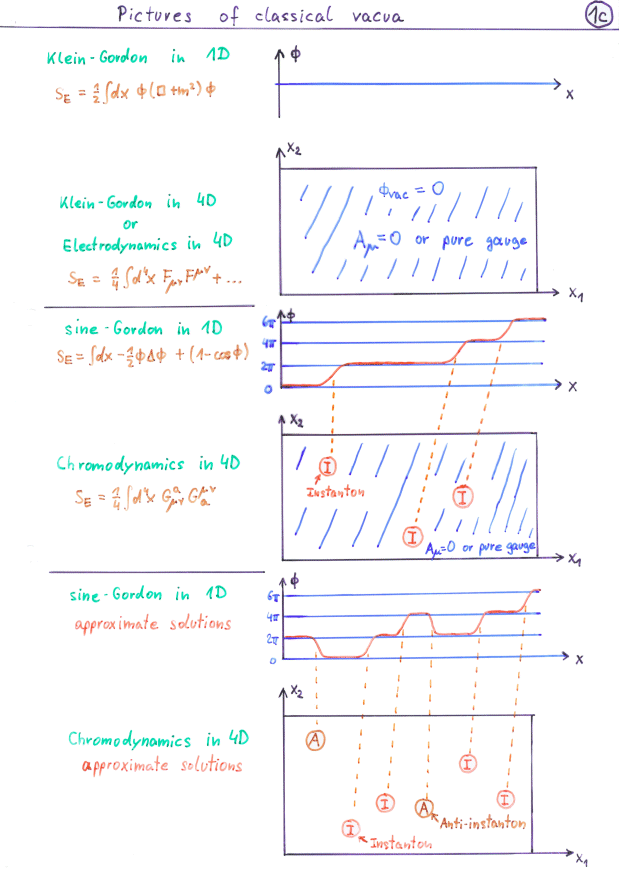 Pictures of classical vacua
1c
Klein-Gordon in 1D
S_E = ½∫dx ϕ(□+m²)ϕ
ϕ
x
Klein-Gordon in 4D
or
Electrodynamics in 4D
S_E = ¼∫d⁴x F_μν F^μν + ...
x₂
ϕ_vac = 0
A_μ=0 or pure gauge
x₁
sine-Gordon in 1D
S_E = ∫dx -½ϕΔϕ + (1-cosϕ)
ϕ
6π
4π
2π
0
x
Chromodynamics in 4D
S_E = ¼∫d⁴x G^a_μν G_a^μν
x₂
I
Instanton
I
I
A_μ=0 or pure gauge
x₁
sine-Gordon in 1D
approximate solutions
ϕ
6π
4π
2π
0
x
Chromodynamics in 4D
approximate solutions
x₂
A
I
I
I
A
I
Anti-instanton
I
Instanton
x₁